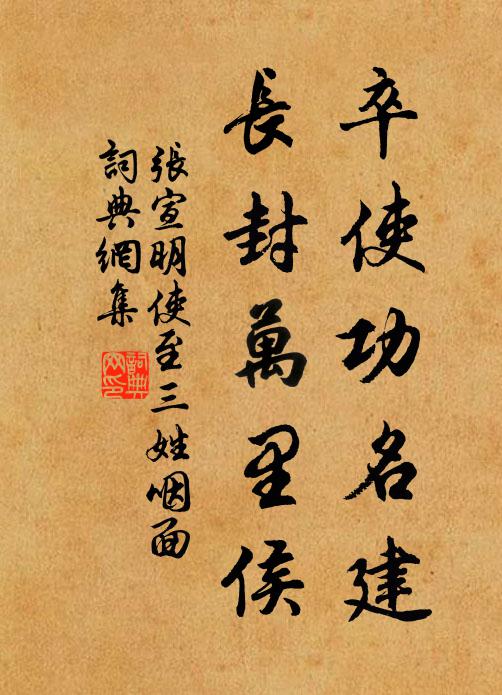 卒使功名建
長封萬里侯
張宣明使至三姓咽面
詞典網集
詞典
网印